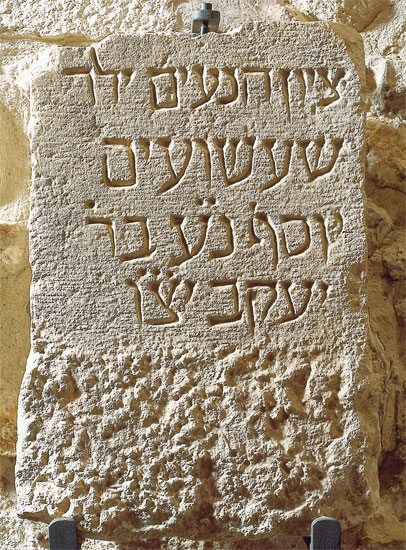 ציון הנעים ילד
שעשועים
יוסף נ״ע בר׳
יעקב יצ״ו